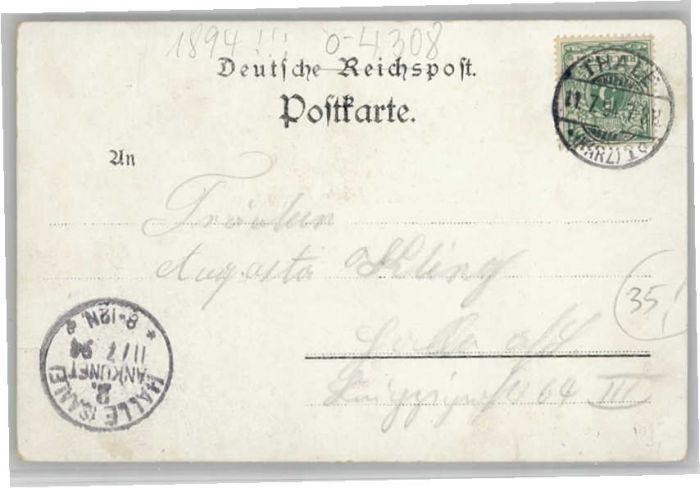 1894!!! O-4308
Deutsche Reichspost.
Postkarte.
THALE
11.7.9 7-8N
(HARZ) 1
An
Fräulein
Augusta Kling
35,
Halle a/S
64 III
HALLE (SAALE)
2.
ANKUNFT
11/7 94
* 8-12N. *